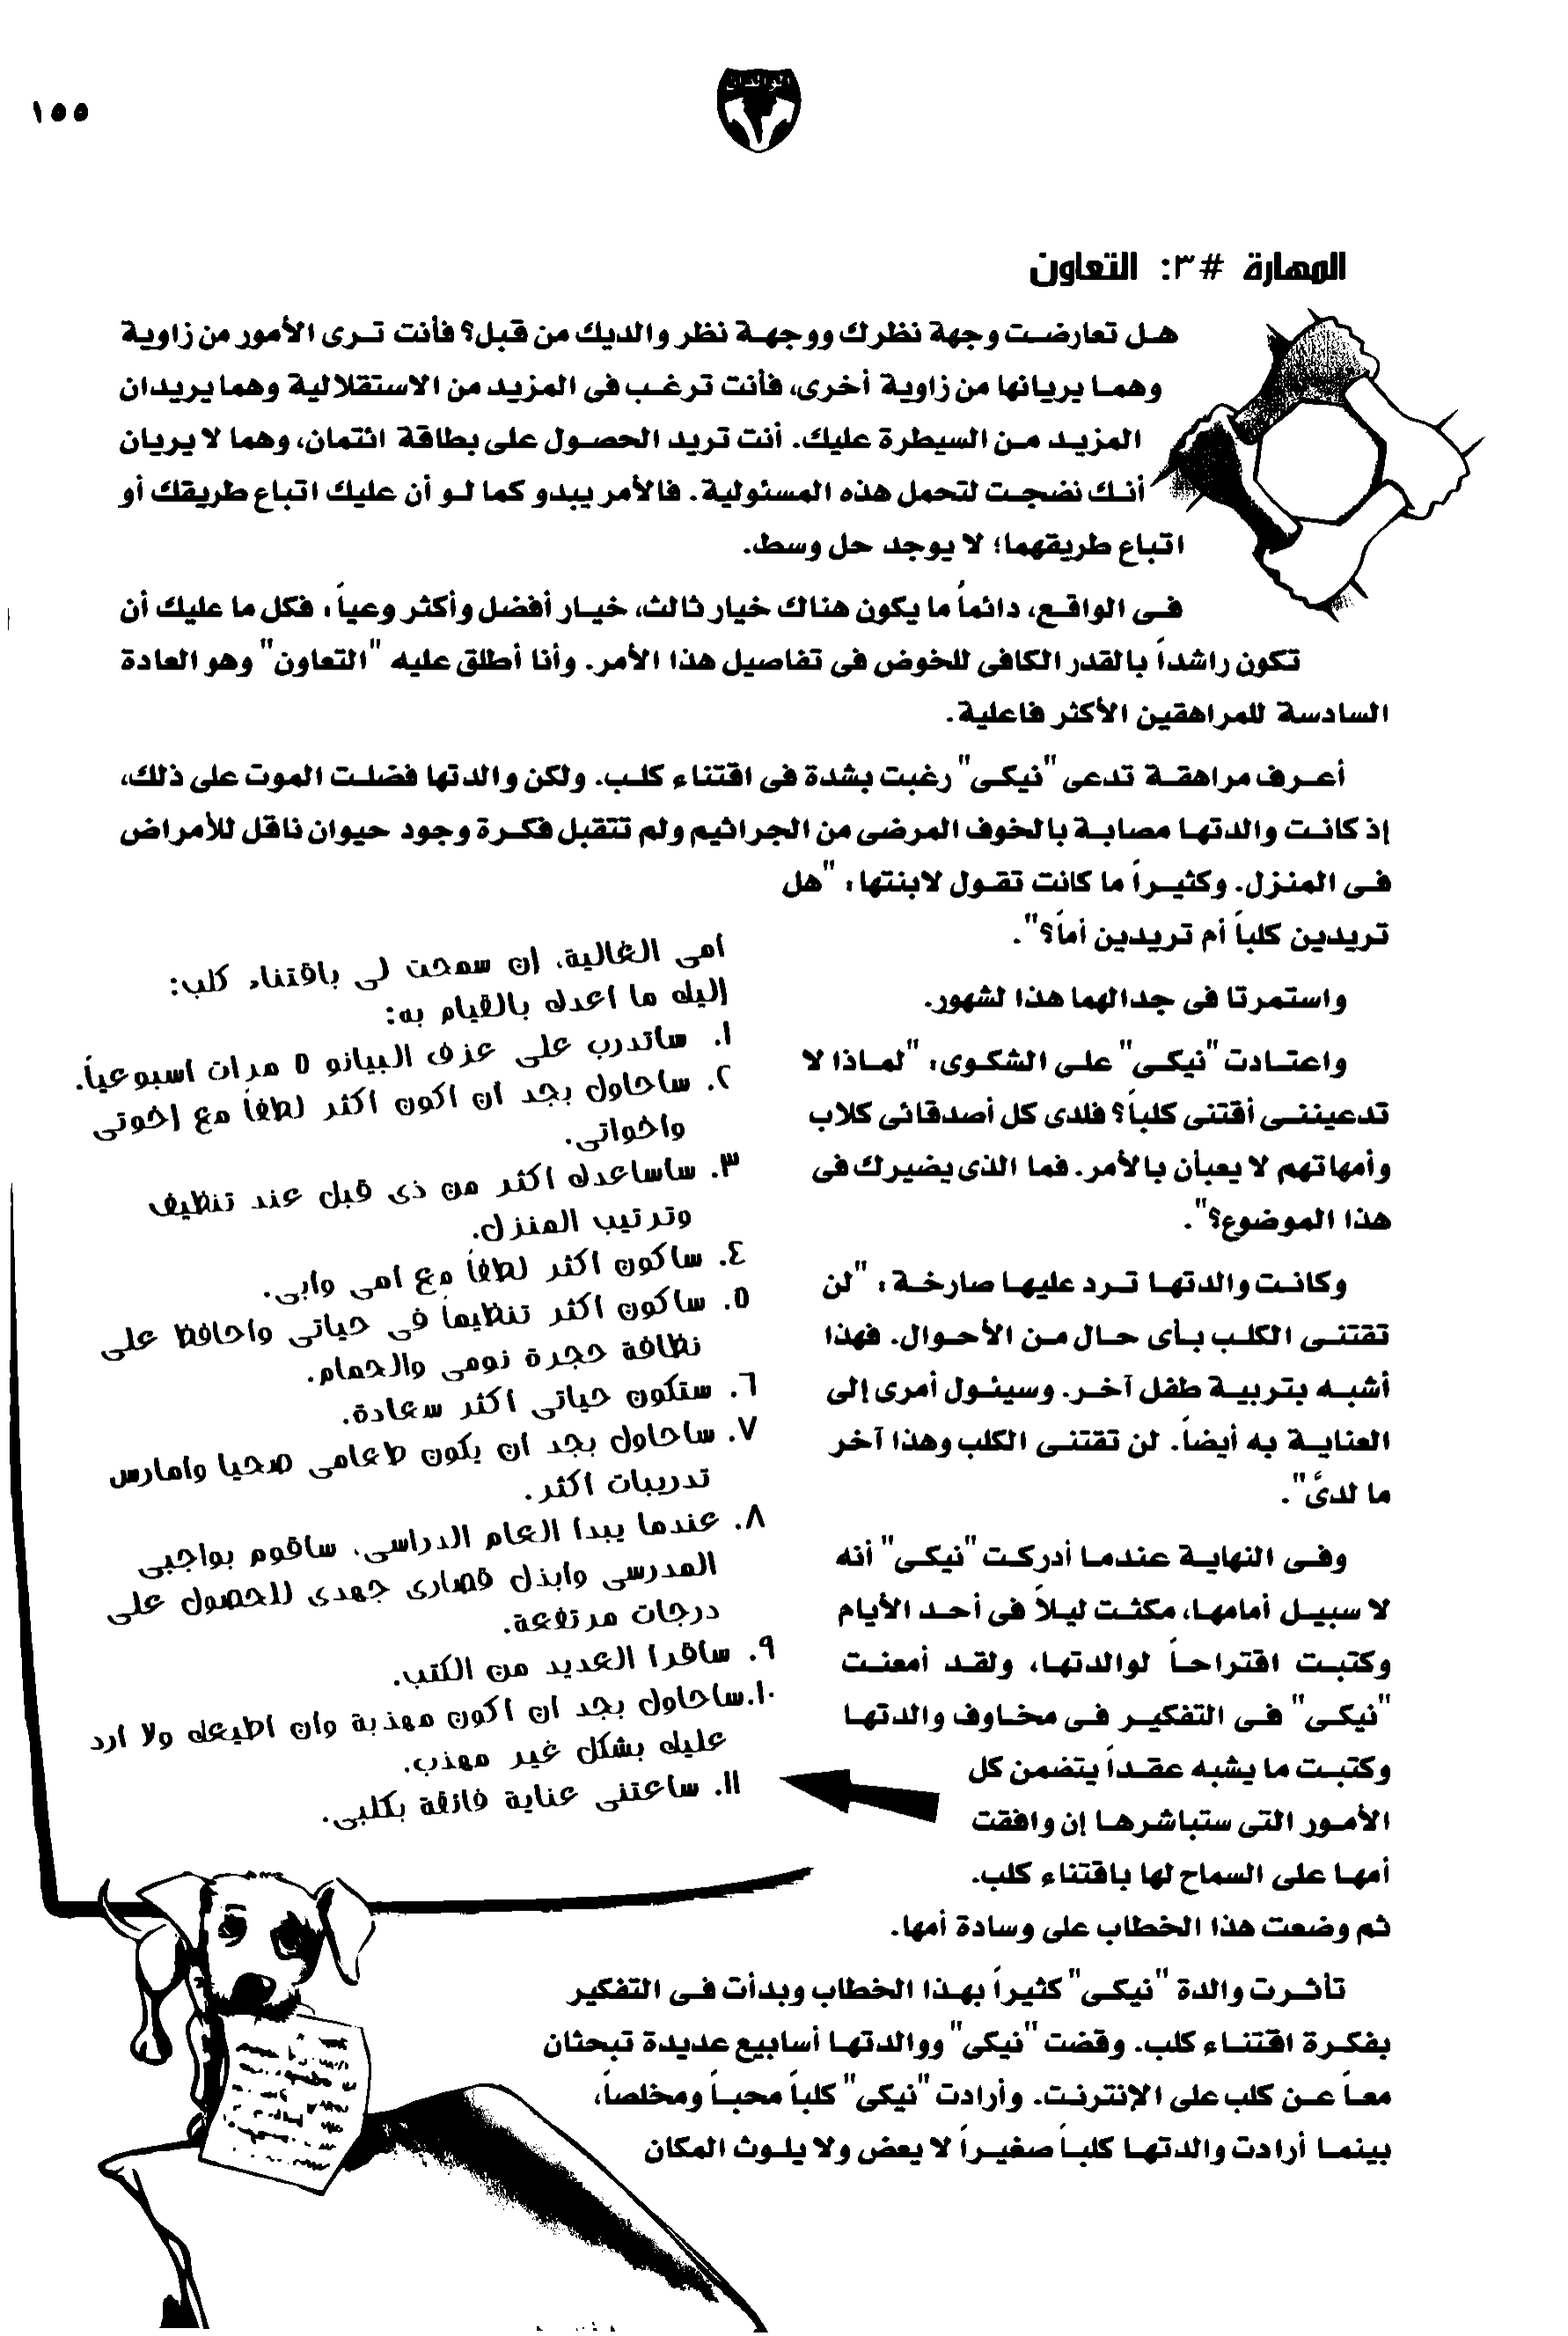 ١٥٥
الوالدان
المهارة #٣: التعاون
هـل تعارضـت وجهة نظرك ووجهـة نظر والديك من قبل؟ فأنت تـرى الأمور من زاوية
وهمـا يريانها من زاوية أخرى، فأنت ترغـب فى المزيد من الاستقلالية وهما يريدان
المزيـد مـن السيطرة عليك. أنت تريد الحصـول على بطاقة ائتمان، وهما لا يريان
أنـك نضجـت لتحمل هذه المسئولية. فالأمر يبدو كما لـو أن عليك اتباع طريقك أو
اتباع طريقهما؛ لا يوجد حل وسط.
فـى الواقـع، دائماً ما يكون هناك خيار ثالث، خيـار أفضل وأكثر وعياً، فكل ما عليك أن
تكون راشداً بالقدر الكافى للخوض فى تفاصيل هذا الأمر. وأنا أطلق عليه "التعاون" وهو العادة
السادسة للمراهقين الأكثر فاعلية.
أعـرف مراهقـة تدعى "نيكـى" رغبت بشدة فى اقتناء كلـب. ولكن والدتها فضلـت الموت على ذلك،
إذ كانـت والدتهـا مصابـة بالخوف المرضى من الجراثيم ولم تتقبل فكـرة وجود حيوان ناقل للأمراض
فـى المنـزل. وكثيـراً ما كانت تقـول لابنتها: "هل
تريدين كلباً أم تريدين أماً؟".
واستمرتا فى جدالهما هذا لشهور.
واعتـادت "نيكـى" علـى الشكـوى: "لمـاذا لا
تدعيننـى أقتنى كلباً؟ فلدى كل أصدقائى كلاب
وأمهاتهم لا يعبأن بالأمر. فما الذى يضيرك فى
هذا الموضوع؟".
وكانـت والدتهـا تـرد عليهـا صارخـة: "لن
تقتنـى الكلـب بـأى حـال مـن الأحـوال. فهذا
أشبـه بتربيـة طفل آخـر. وسيئـول أمرى إلى
العنايـة به أيضـاً. لن تقتنـى الكلب وهذا آخر
ما لدىَّ".
وفـى النهايـة عندمـا أدركـت "نيكـى" أنه
لا سبيـل أمامهـا، مكثـت ليـلاً فى أحـد الأيام
وكتبـت اقتراحـاً لوالدتهـا، ولقـد أمعنـت
"نيكـى" فـى التفكيـر فـى مخـاوف والدتهـا
وكتبـت ما يشبه عقـداً يتضمن كل
الأمـور التى ستباشرهـا إن وافقت
أمهـا على السماح لها باقتناء كلب.
ثم وضعت هذا الخطاب على وسادة أمها.
أمى الغالية، إن سمحت لى باقتناء كلب:
إليك ما أعدك بالقيام به:
١. سأتدرب على عزف البيانو ٥ مرات أسبوعياً.
٢. سأحاول بجد أن أكون أكثر لطفاً مع إخوتى
وأخواتى.
٣. سأساعدك أكثر من ذى قبل عند تنظيف
وترتيب المنزل.
٤. سأكون أكثر لطفاً مع أمى وأبى.
٥. سأكون أكثر تنظيماً فى حياتى وأحافظ على
نظافة حجرة نومى والحمام.
٦. ستكون حياتى أكثر سعادة.
٧. سأحاول بجد أن يكون طعامى صحيا وأمارس
تدريبات أكثر.
٨. عندما يبدأ العام الدراسى، سأقوم بواجبى
المدرسى وأبذل قصارى جهدى للحصول على
درجات مرتفعة.
٩. سأقرأ العديد من الكتب.
١٠.سأحاول بجد أن أكون مهذبة وأن أطيعك ولا أرد
عليك بشكل غير مهذب.
١١. سأعتنى عناية فائقة بكلبى.
تأثـرت والدة "نيكـى" كثيـراً بهـذا الخطاب وبدأت فـى التفكير
بفكـرة اقتنـاء كلب. وقضت "نيكى" ووالدتهـا أسابيع عديدة تبحثان
معـاً عـن كلب على الإنترنـت. وأرادت "نيكى" كلباً محبـاً ومخلصاً،
بينمـا أرادت والدتهـا كلبـاً صغيـراً لا يعض ولا يلـوث المكان